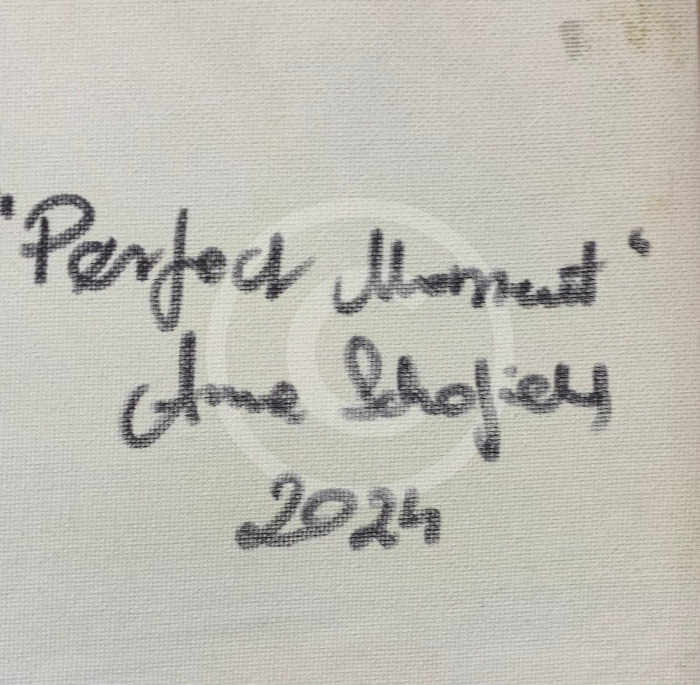 "Perfect Moment"
Anna Schofield
2024